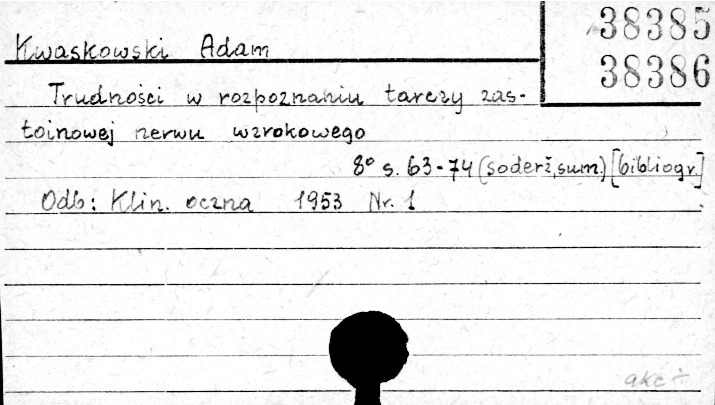 38385
38386
Kwaskowski Adam
Trudności w rozpoznaniu tarczy zas-
toinowej nerwu wzrokowego
8° s. 63-74 (soderž, sum.) [bibliogr.]
Odb: Klin. oczna 1953 Nr. 1
akc